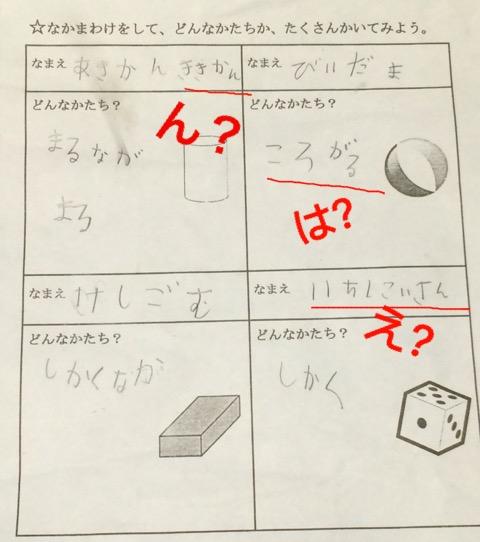 ☆なかまわけをして、どんなかたちか、たくさんかいてみよう。
なまえ あきかん ききかん
なまえ びいだま
どんなかたち？
ん？
まるなが
まろ
どんなかたち？
ころがる
は？
なまえ けしごむ
なまえ いちしこいさん
え？
どんなかたち？
しかくなが
どんなかたち？
しかく